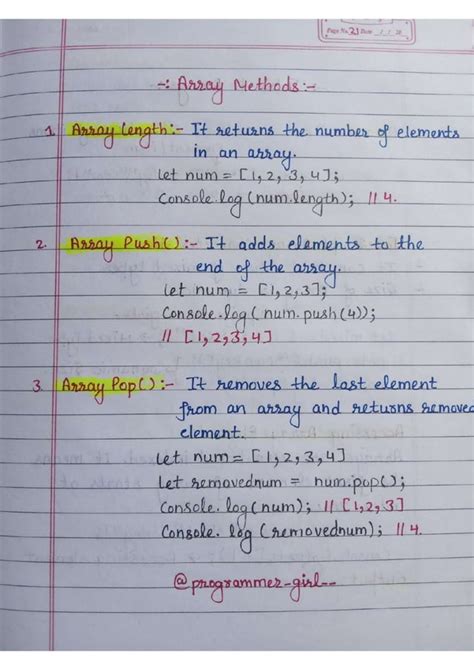 Page No. 21 Date
-: Array Methods:-
1. Array Length:- It returns the number of elements
in an array.
let num = [1, 2, 3, 4];
Console.log (num.length); // 4.
2. Array Push():- It adds elements to the
end of the array.
let num = [1,2,3];
Console.log( num.push(4));
// [1,2,3,4]
3. Array Pop():- It removes the last element
from an array and returns removed
element.
let num = [1, 2, 3, 4]
let removednum = num.pop();
Console.log(num); // [1,2,3]
Console. log (removednum); // 4.
@programmer-girl--